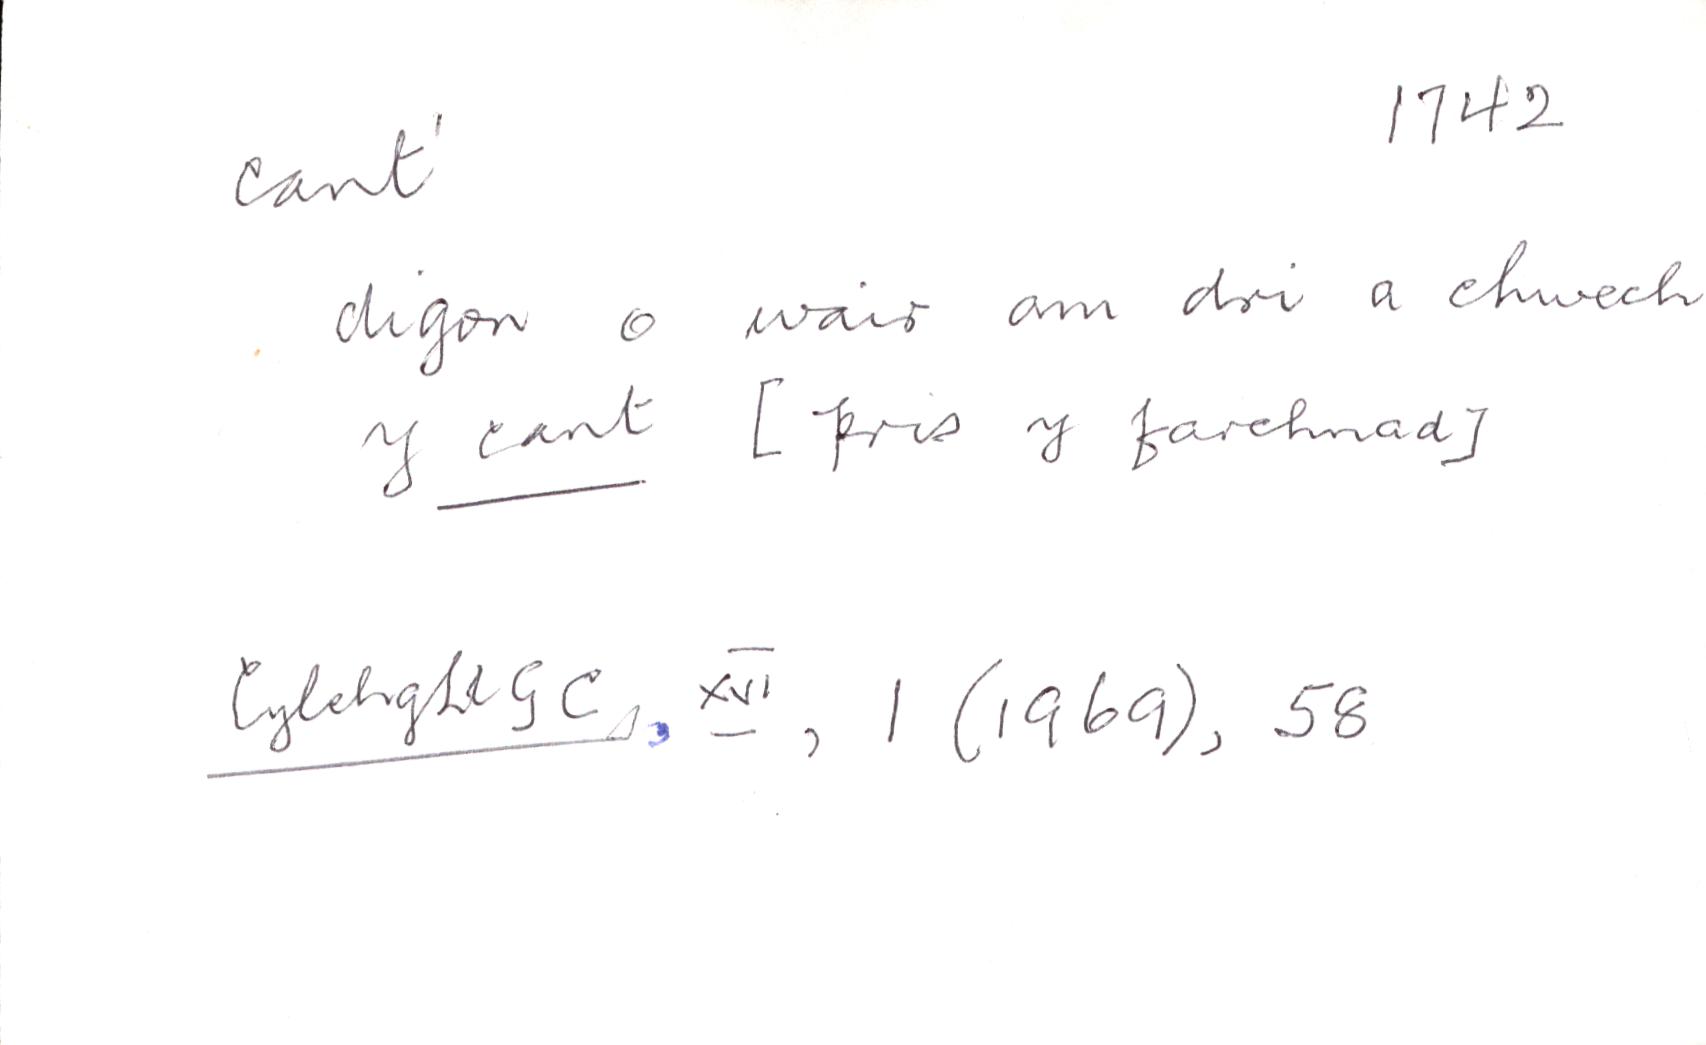 1742
cant¹
digon o wair am dri a chwech
y cant [pris y farchnad]
CylchgHGC, XVI, 1 (1969), 58